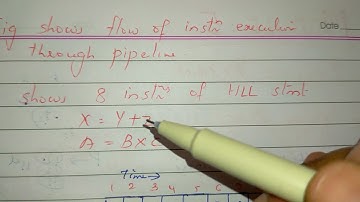 Fig shows flow of instrn execution
Date
through pipeline
shows 8 instrn of HLL stmt
X = Y + Z
A = B X C
Time →
1 2 3 4 5 6 7 8